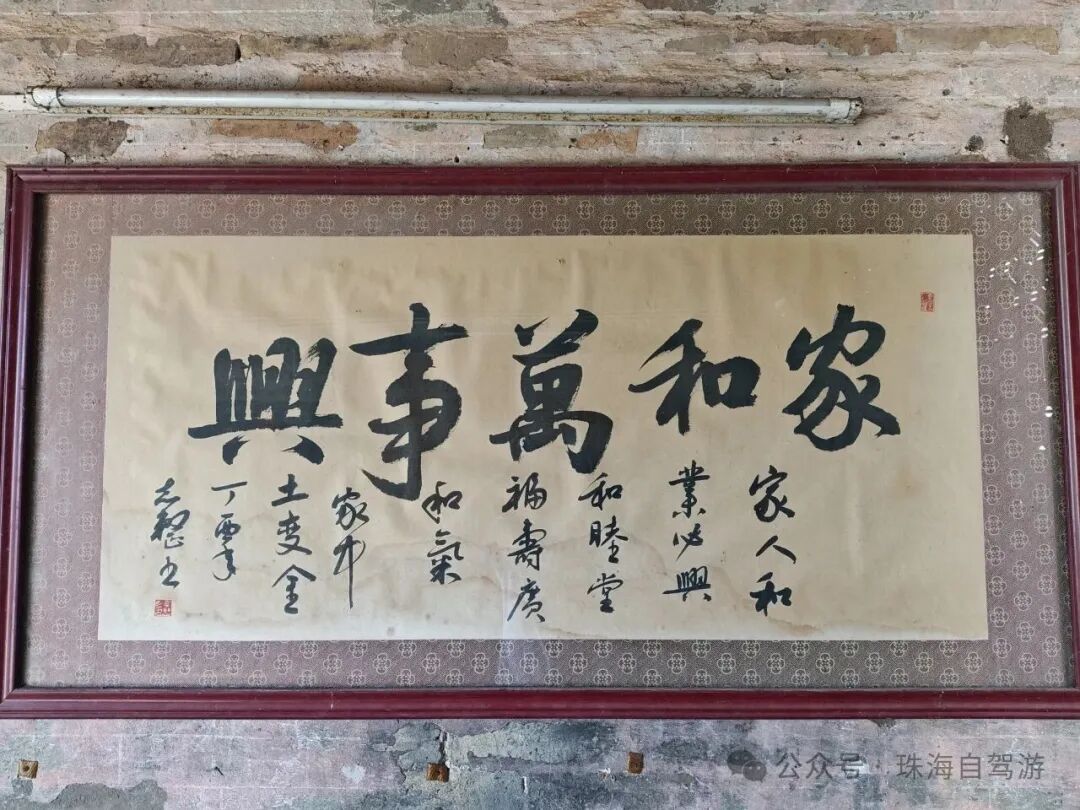 家和萬事興
家人和
業必興
和睦堂
福壽廣
和氣
家中
土變金
丁酉年
公众号 · 珠海自驾游